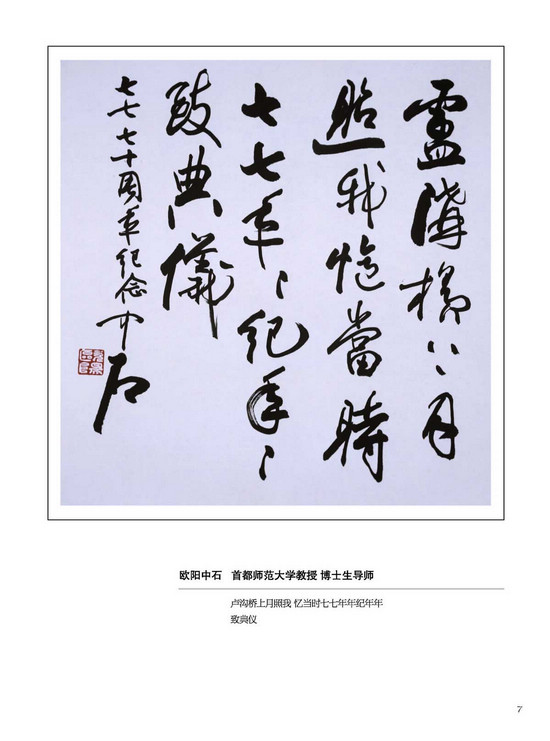 盧溝橋上月
照我憶當時
七七年々紀年々
致典儀
七七七十周年纪念 中石
欧阳中石 首都师范大学教授 博士生导师
卢沟桥上月照我 忆当时七七年年纪年年
致典仪
7